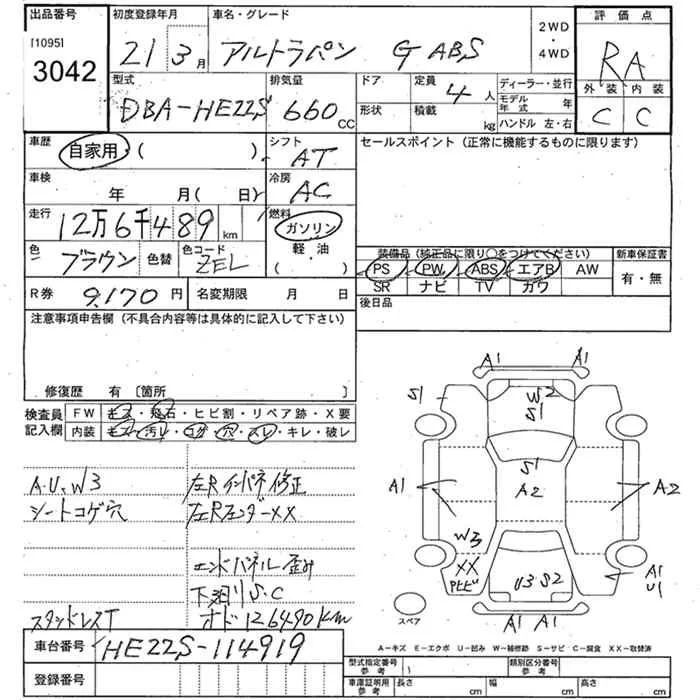 出品番号
[1095]
3042
初度登録年月
21 3月
車名・グレード
アルトラパン G ABS
2WD
・
4WD
評価点
RA
外装 内装
C C
型式
DBA-HE22S
排気量
660cc
ドア
形状
定員
4人
積載
kg
ディーラー・並行
モデル年式 年
ハンドル 左・右
車歴
自家用 ( )
シフト
AT
セールスポイント（正常に機能するものに限ります）
車検
年 月( 日)
冷房
AC
走行
12万6千489km
燃料
ガソリン
軽・油
( )
色
ブラウン
色替
色コード
ZEL
装備品（純正品に限り○をつけてください）
PS PW ABS エアB AW
SR ナビ TV カワ
新車保証書
有・無
R券
9,170円
名変期限 月 日
後日品
注意事項申告欄（不具合内容等は具体的に記入して下さい）
修復歴 有 〔箇所 〕
検査員記入欄
FW キズ・飛石・ヒビ割・リペア跡・X要
内装 キズ・汚レ・コゲ・穴・スレ・キレ・破レ
A.U.W3
シートコゲ穴
スタッドレスT
左Rインパネ修正
左RフェンダーXX
エンドパネル歪み
下廻りS.C
オド126490km
A1 A1
S1
W2
S1
S1
A1
A2
A2
W3
XX
U3 S2
A1
U1
A1 A1
スペア
A-キズ E-エクボ U-凹み W-補修跡 S-サビ C-腐食 XX-取替済
車台番号
HE22S-114919
登録番号
型式指定番号
参考
類別区分番号
参考
車庫証明用
参考
長さ cm
幅 cm
高さ cm